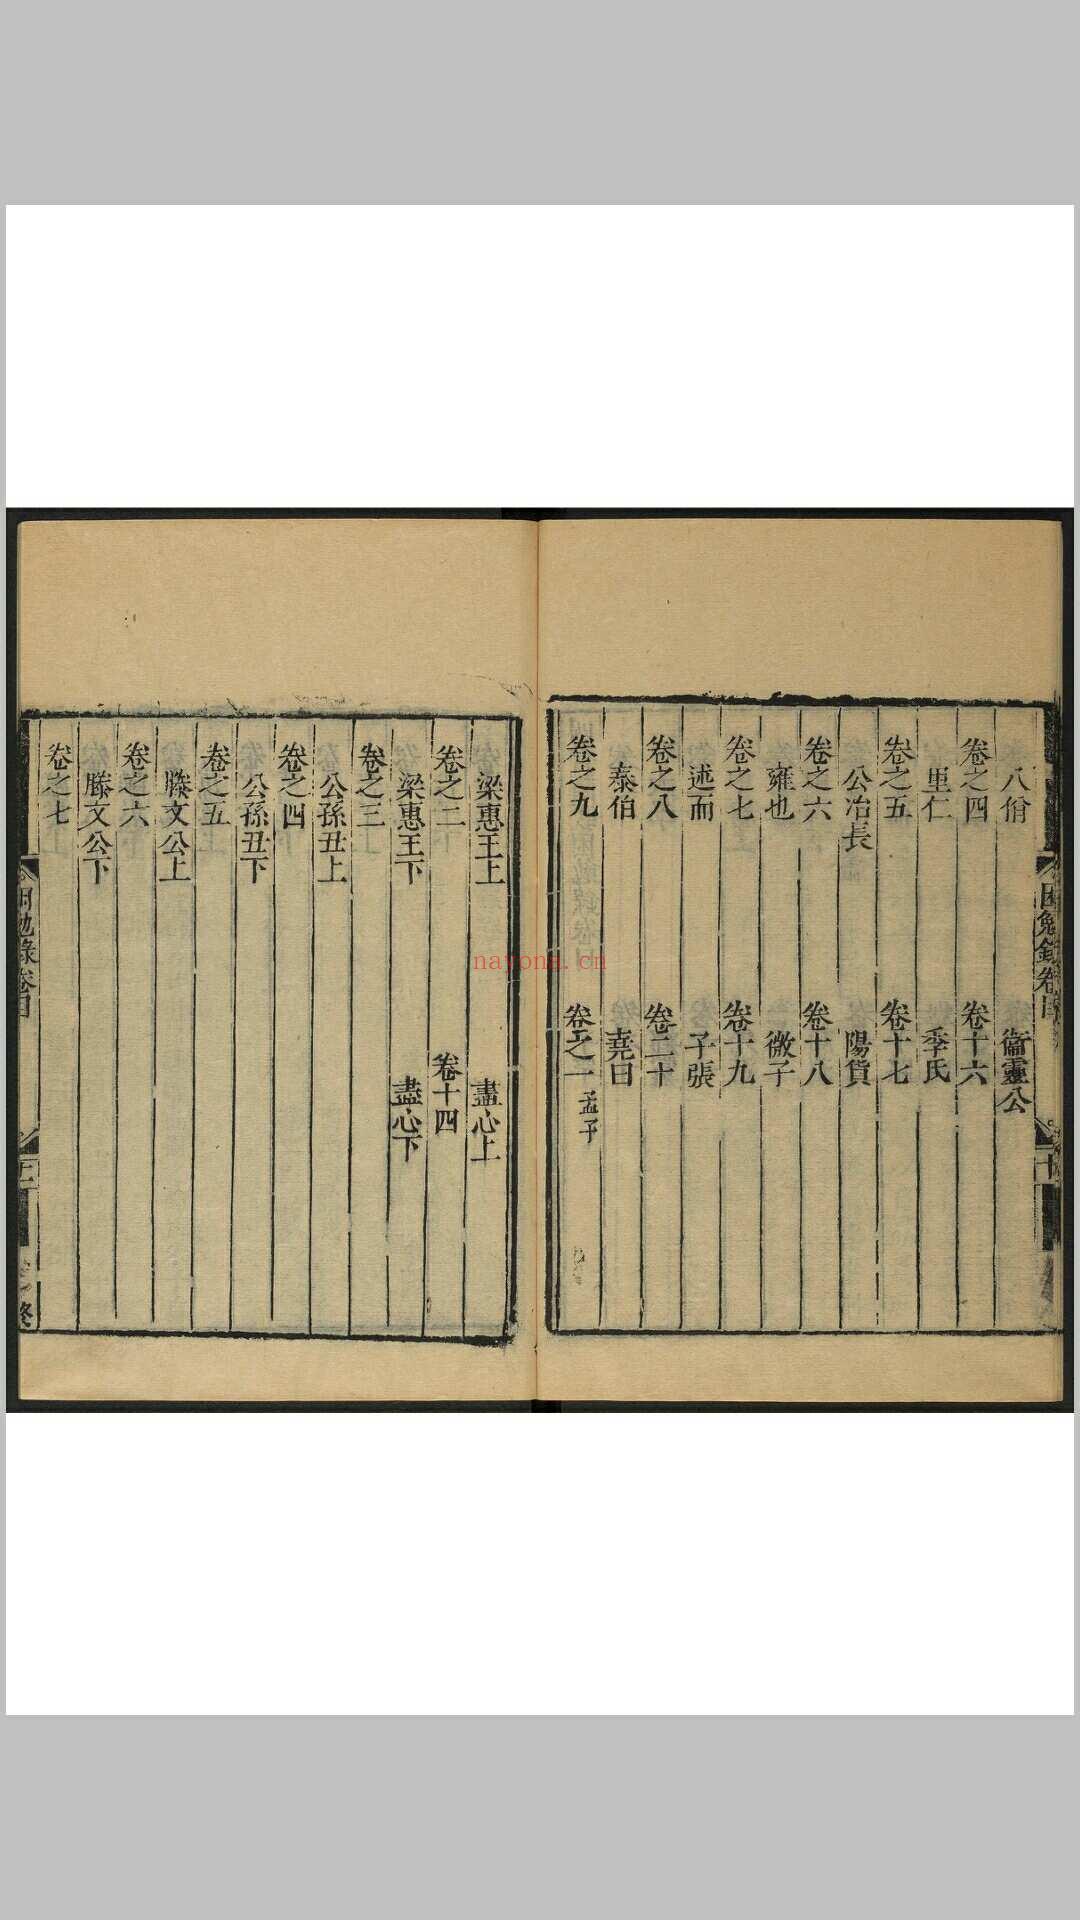 八佾　衞靈公
卷之四　卷十六
里仁　季氏
卷之五　卷十七
公冶長　陽貨
卷之六　卷十八
雍也　微子
卷之七　卷十九
述而　子張
卷之八　卷二十
泰伯　堯曰
卷之九　卷之一 孟子
梁惠王上　盡心上
卷之二　卷十四
梁惠王下　盡心下
卷之三
公孫丑上
卷之四
公孫丑下
卷之五
滕文公上
卷之六
滕文公下
卷之七
困勉錄
nayona.cn